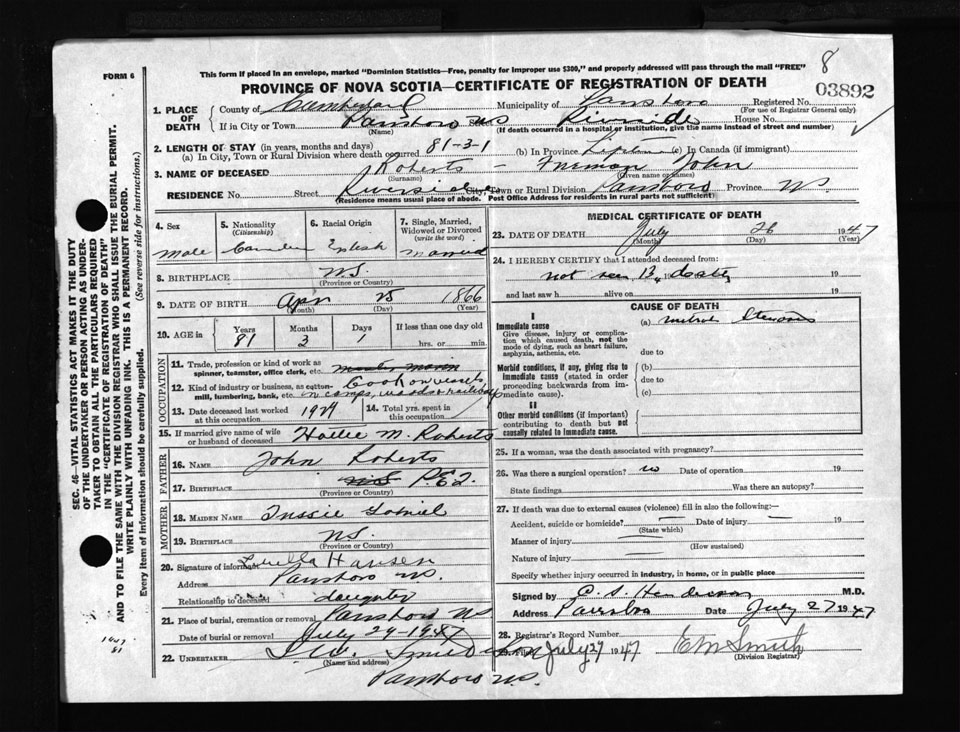 8
FORM 6
This form if placed in an envelope, marked "Dominion Statistics—Free, penalty for improper use $300," and properly addressed will pass through the mail "FREE"
PROVINCE OF NOVA SCOTIA—CERTIFICATE OF REGISTRATION OF DEATH
03892
1. PLACE OF DEATH
County of Cumberland Municipality of Parrsboro Registered No.
(For use of Registrar General only)
If in City or Town Parrsboro NS Street Riverside House No.
(Name) (If death occurred in a hospital or institution, give the name instead of street and number)
2. LENGTH OF STAY (in years, months and days)
(a) In City, Town or Rural Division where death occurred 81-3-1 (b) In Province Lifetime (c) In Canada (if immigrant)
3. NAME OF DECEASED Roberts - Freeman John
(Surname) (Given name or names)
RESIDENCE No. Street Riverside City, Town or Rural Division Parrsboro Province NS
(Residence means usual place of abode. Post Office Address for residents in rural parts not sufficient)
4. Sex
male
5. Nationality
(Citizenship)
Canadian
6. Racial Origin
English
7. Single, Married, Widowed or Divorced
(write the word)
married
8. BIRTHPLACE NS.
(Province or Country)
9. DATE OF BIRTH Apr 25 1866
(Month) (Day) (Year)
10. AGE in
Years Months Days If less than one day old
81 3 1 hrs. or min.
OCCUPATION
11. Trade, profession or kind of work as spinner, teamster, office clerk, etc.
12. Kind of industry or business, as cotton-mill, lumbering, bank, etc.
Cook on vessels in camps, woods & railways
13. Date deceased last worked at this occupation 1929
14. Total yrs. spent in this occupation
15. If married give name of wife or husband of deceased Hattie M. Roberts
FATHER
16. NAME John Roberts
17. BIRTHPLACE NS P.E.I.
(Province or Country)
MOTHER
18. MAIDEN NAME
19. BIRTHPLACE NS.
(Province or Country)
20. Signature of informant Luella Hansen
Address Parrsboro NS.
Relationship to deceased daughter
21. Place of burial, cremation or removal Parrsboro NS
Date of burial or removal July 29-1947
22. UNDERTAKER
(Name and address)
Parrsboro NS.
MEDICAL CERTIFICATE OF DEATH
23. DATE OF DEATH July 26 1947
(Month) (Day) (Year)
24. I HEREBY CERTIFY that I attended deceased from:
not seen 19
and last saw h alive on 19
CAUSE OF DEATH
I
Immediate cause
Give disease, injury or complication which caused death, not the mode of dying, such as heart failure, asphyxia, asthenia, etc.
(a) mitral Stenosis
due to
Morbid conditions, if any, giving rise to immediate cause (stated in order proceeding backwards from immediate cause).
(b)
due to
(c)
II
Other morbid conditions (if important) contributing to death but not causally related to immediate cause.
25. If a woman, was the death associated with pregnancy?
26. Was there a surgical operation? no Date of operation 19
State findings Was there an autopsy?
27. If death was due to external causes (violence) fill in also the following:—
Accident, suicide or homicide? Date of injury 19
(State which)
Manner of injury
(How sustained)
Nature of injury
Specify whether injury occurred in industry, in home, or in public place
Signed by C. S. Henderson M.D.
Address Parrsboro Date July 27 1947
28. Registrar's Record Number
July 29 1947 E M Smith
(Division Registrar)
SEC. 46—VITAL STATISTICS ACT MAKES IT THE DUTY
OF THE UNDERTAKER OR PERSON ACTING AS UNDER-
TAKER TO OBTAIN ALL THE PARTICULARS REQUIRED
IN THE "CERTIFICATE OF REGISTRATION OF DEATH"
AND TO FILE THE SAME WITH THE DIVISION REGISTRAR WHO SHALL ISSUE THE BURIAL PERMIT.
WRITE PLAINLY WITH UNFADING INK. THIS IS A PERMANENT RECORD.
Every item of information should be carefully supplied. (See reverse side for instructions.)
1947
81